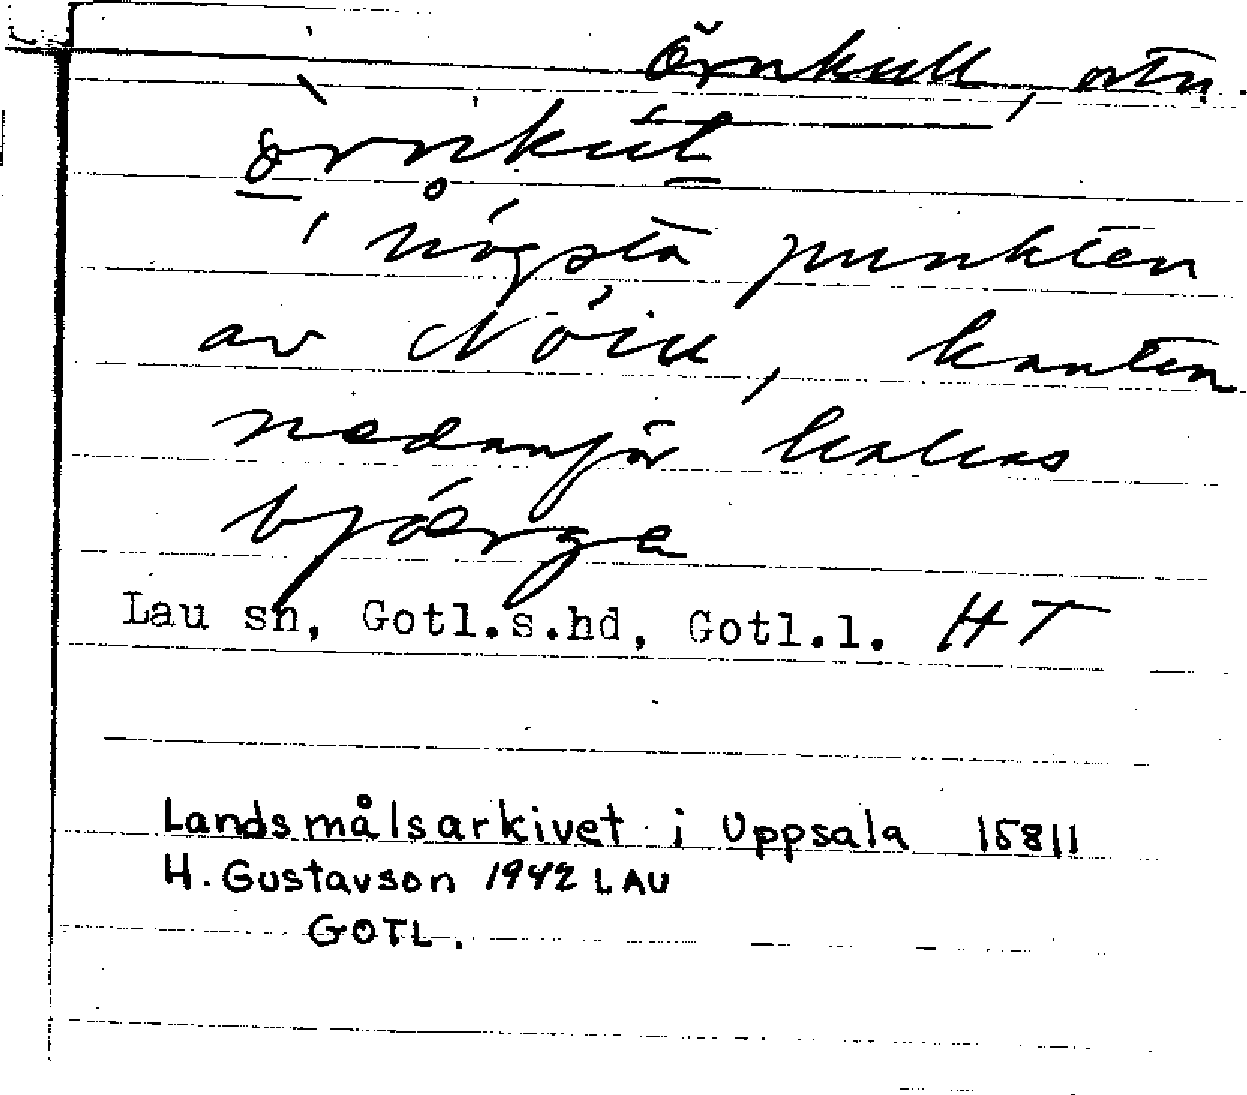 Örnkull, ortn.
örnkúl
högsta punkten
av Nóiu, kanten
nedanför
bjaerge
Lau sn, Gotl.s.hd, Gotl.l. HT
Landsmålsarkivet i Uppsala 15811
H. Gustavson 1942 LAU
GOTL.